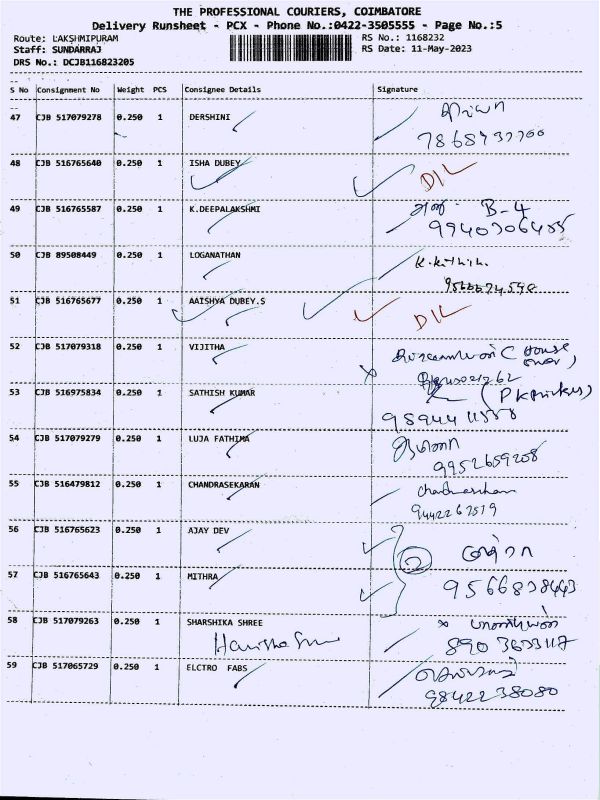 THE PROFESSIONAL COURIERS, COIMBATORE
Delivery Runsheet - PCX - Phone No.:0422-3505555 - Page No.:5
Route: LAKSHMIPURAM
RS No.: 1168232
Staff: SUNDARRAJ
RS Date: 11-May-2023
DRS No.: DCJB116823205
S No Consignment No Weight PCS Consignee Details Signature
47 CJB 517079278 0.250 1 DERSHINI
48 CJB 516765640 0.250 1 ISHA DUBEY D/L
49 CJB 516765587 0.250 1 K.DEEPALAKSHMI B-4
50 CJB 89508449 0.250 1 LOGANATHAN
51 CJB 516765677 0.250 1 AAISHYA DUBEY.S D/L
52 CJB 517079318 0.250 1 VIJITHA
53 CJB 516975834 0.250 1 SATHISH KUMAR
54 CJB 517079279 0.250 1 LUJA FATHIMA
9952659208
55 CJB 516479812 0.250 1 CHANDRASEKARAN
9442267519
56 CJB 516765623 0.250 1 AJAY DEV
2
57 CJB 516765643 0.250 1 MITHRA
9566838443
58 CJB 517079263 0.250 1 SHARSHIKA SHREE
59 CJB 517065729 0.250 1 ELCTRO FABS
9842238080